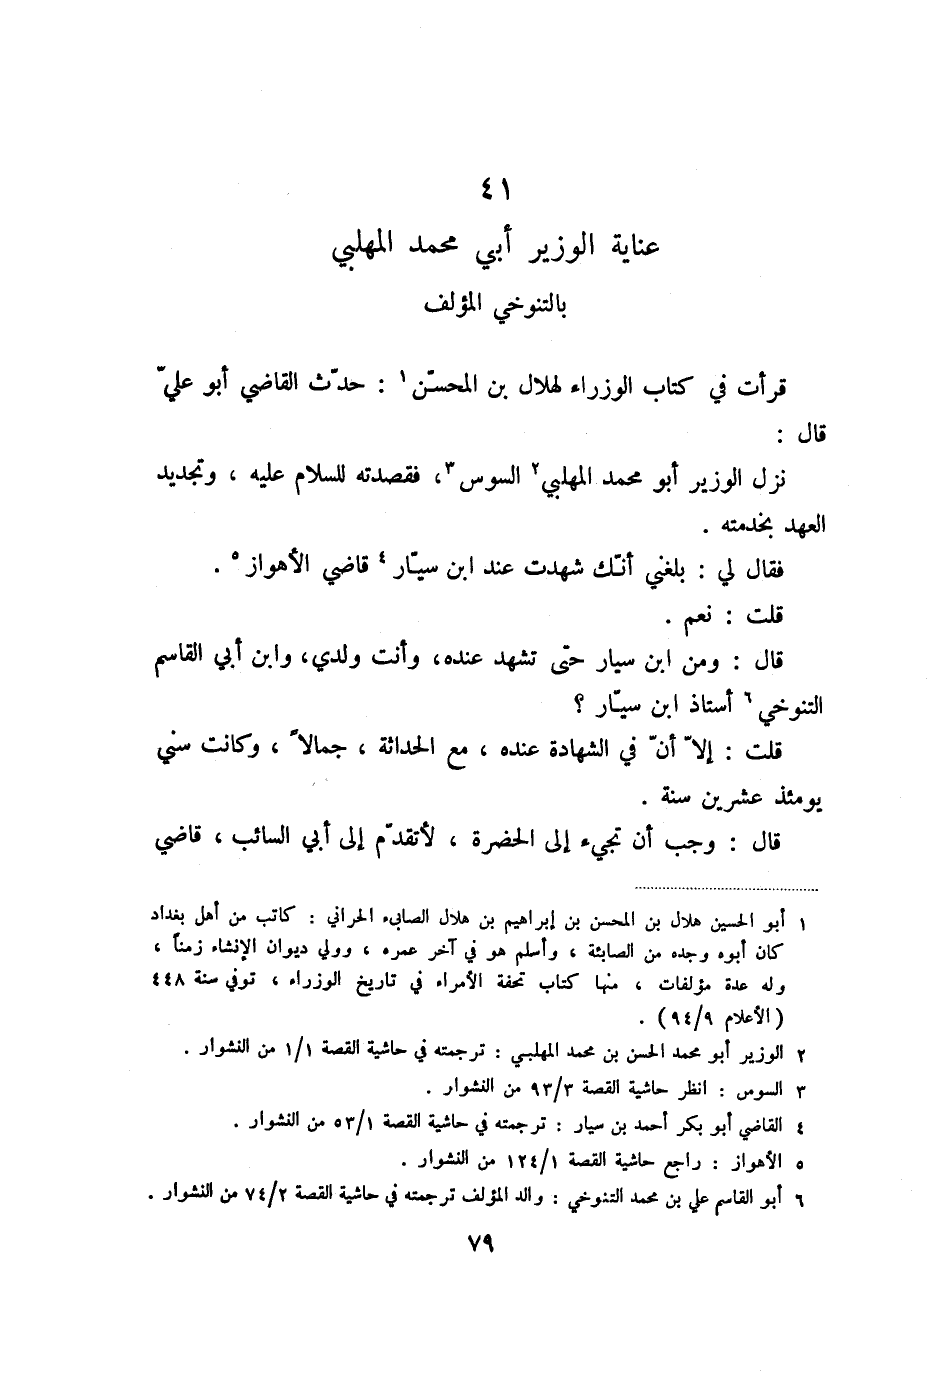 ٤١
عناية الوزير أبي محمد المهلبي
بالتنوخي المؤلف
قرأت في كتاب الوزراء لهلال بن المحسّن ١ : حدّث القاضي أبو عليّ
قال :
نزل الوزير أبو محمد المهلبي ٢ السوس ٣، فقصدته للسلام عليه ، وتجديد
العهد بخدمته .
فقال لي : بلغني أنّك شهدت عند ابن سيّار ٤ قاضي الأهواز ٥ .
قلت : نعم .
قال : ومن ابن سيار حتّى تشهد عنده، وأنت ولدي، وابن أبي القاسم
التنوخي ٦ أستاذ ابن سيّار ؟
قلت : إلاّ أنّ في الشهادة عنده ، مع الحداثة ، جمالاً ، وكانت سني
يومئذ عشرين سنة .
قال : وجب أن تجيء إلى الحضرة ، لأتقدّم إلى أبي السائب ، قاضي
١ أبو الحسين هلال بن المحسن بن إبراهيم بن هلال الصابىء الحراني : كاتب من أهل بغداد
كان أبوه وجده من الصابئة ، وأسلم هو في آخر عمره ، وولي ديوان الإنشاء زمناً ،
وله عدة مؤلفات ، منها كتاب تحفة الأمراء في تاريخ الوزراء ، توفي سنة ٤٤٨
(الأعلام ٩٤/٩) .
٢ الوزير أبو محمد الحسن بن محمد المهلبي : ترجمته في حاشية القصة ١/١ من النشوار .
٣ السوس : انظر حاشية القصة ٩٣/٣ من النشوار .
٤ القاضي أبو بكر أحمد بن سيار : ترجمته في حاشية القصة ٥٣/١ من النشوار .
٥ الأهواز : راجع حاشية القصة ١٢٤/١ من النشوار .
٦ أبو القاسم علي بن محمد التنوخي : والد المؤلف ترجمته في حاشية القصة ٧٤/٢ من النشوار .
٧٩